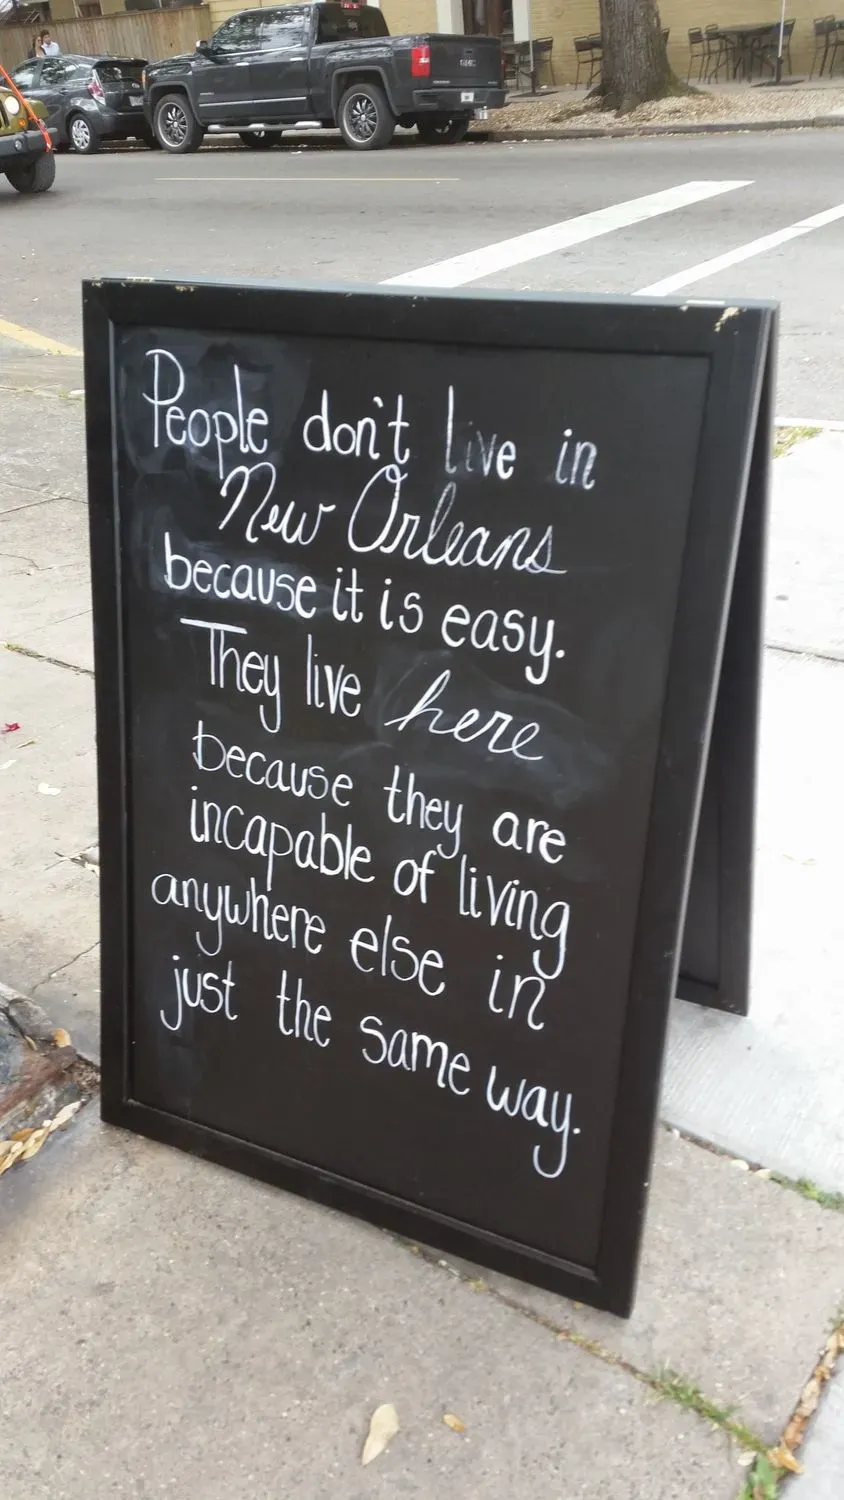 People don't live in
New Orleans
because it is easy.
They live here
because they are
incapable of living
anywhere else in
just the same way.
GMC